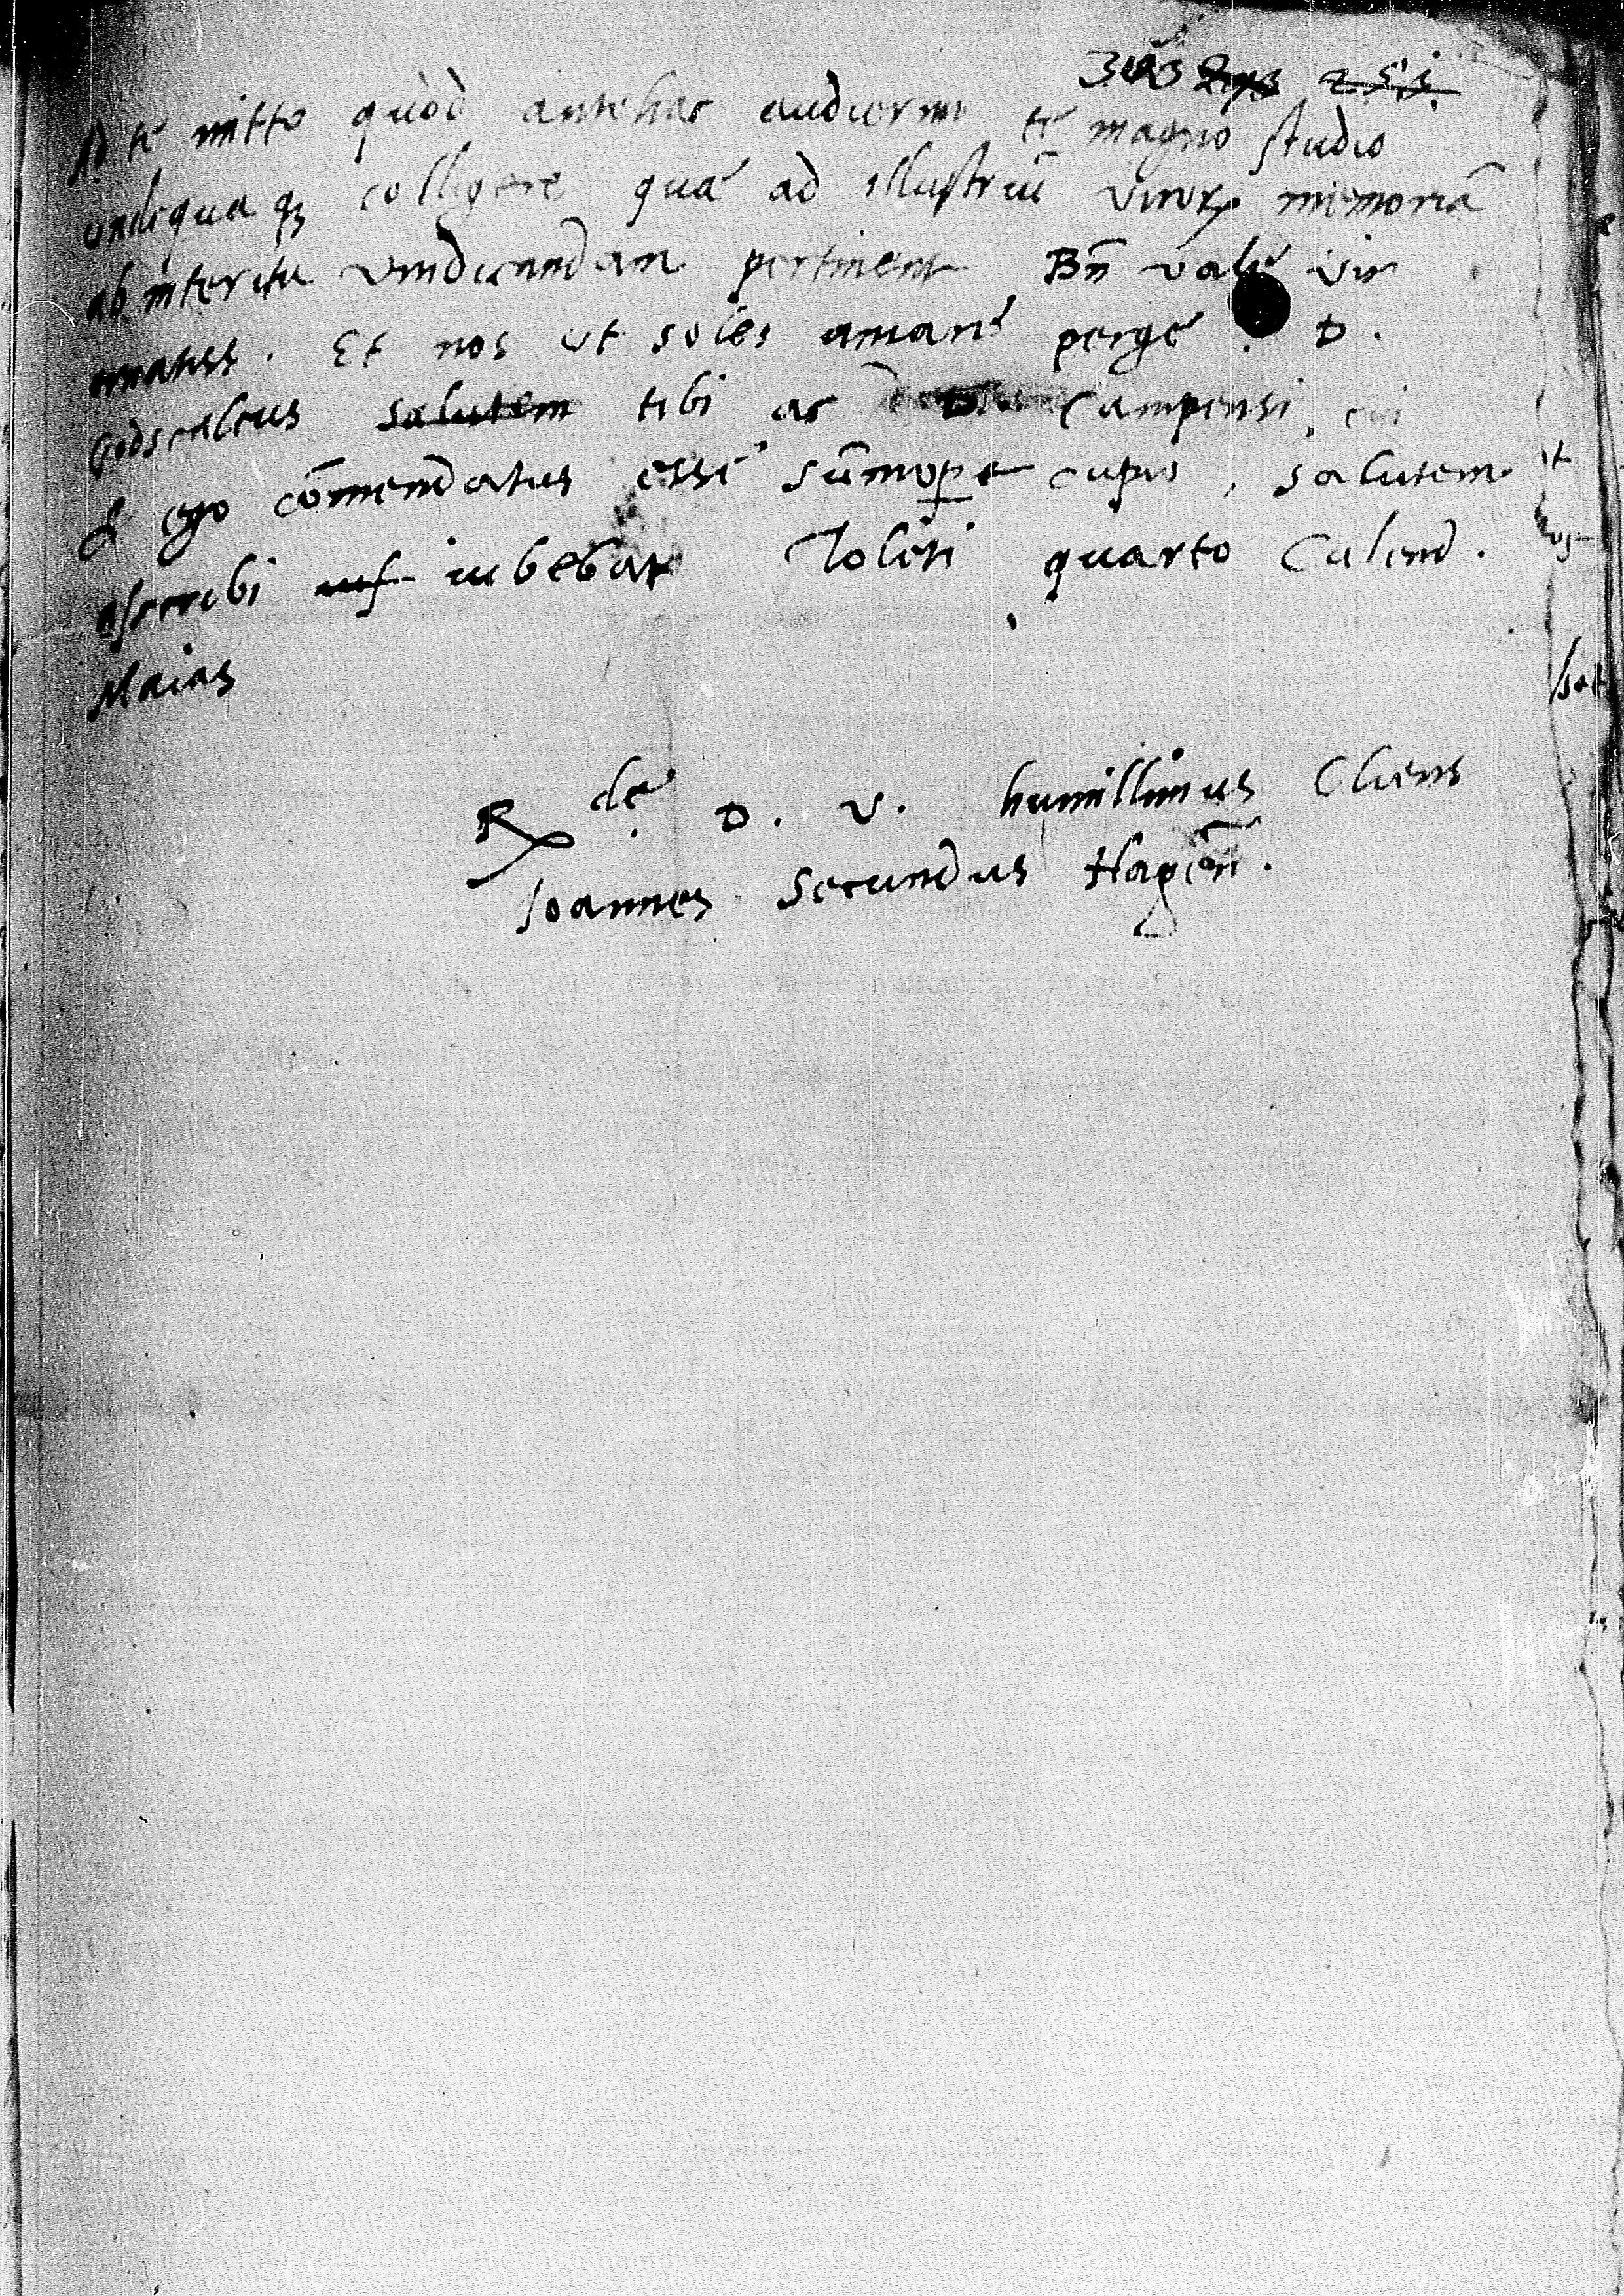 ad te mitto quòd antehac audiverim te magno studio
undiquaq3 colligere quae ad illustriũ virorꝝ memoriã
ab interitu vindicandam pertinent Bñ vale vir
ornatiss. Et nos ut soles amare perge. D.
Godscalcus salutem tibi ac D. Campensi, cui
& ego cõmendatus esse sũmoꝑe cupio, salutem
ascribi iubebat Toleti quarto Calend.
Maias
R dẽ. D. V. humillimus Cliens
Ioannes Secundus Hagieñ.